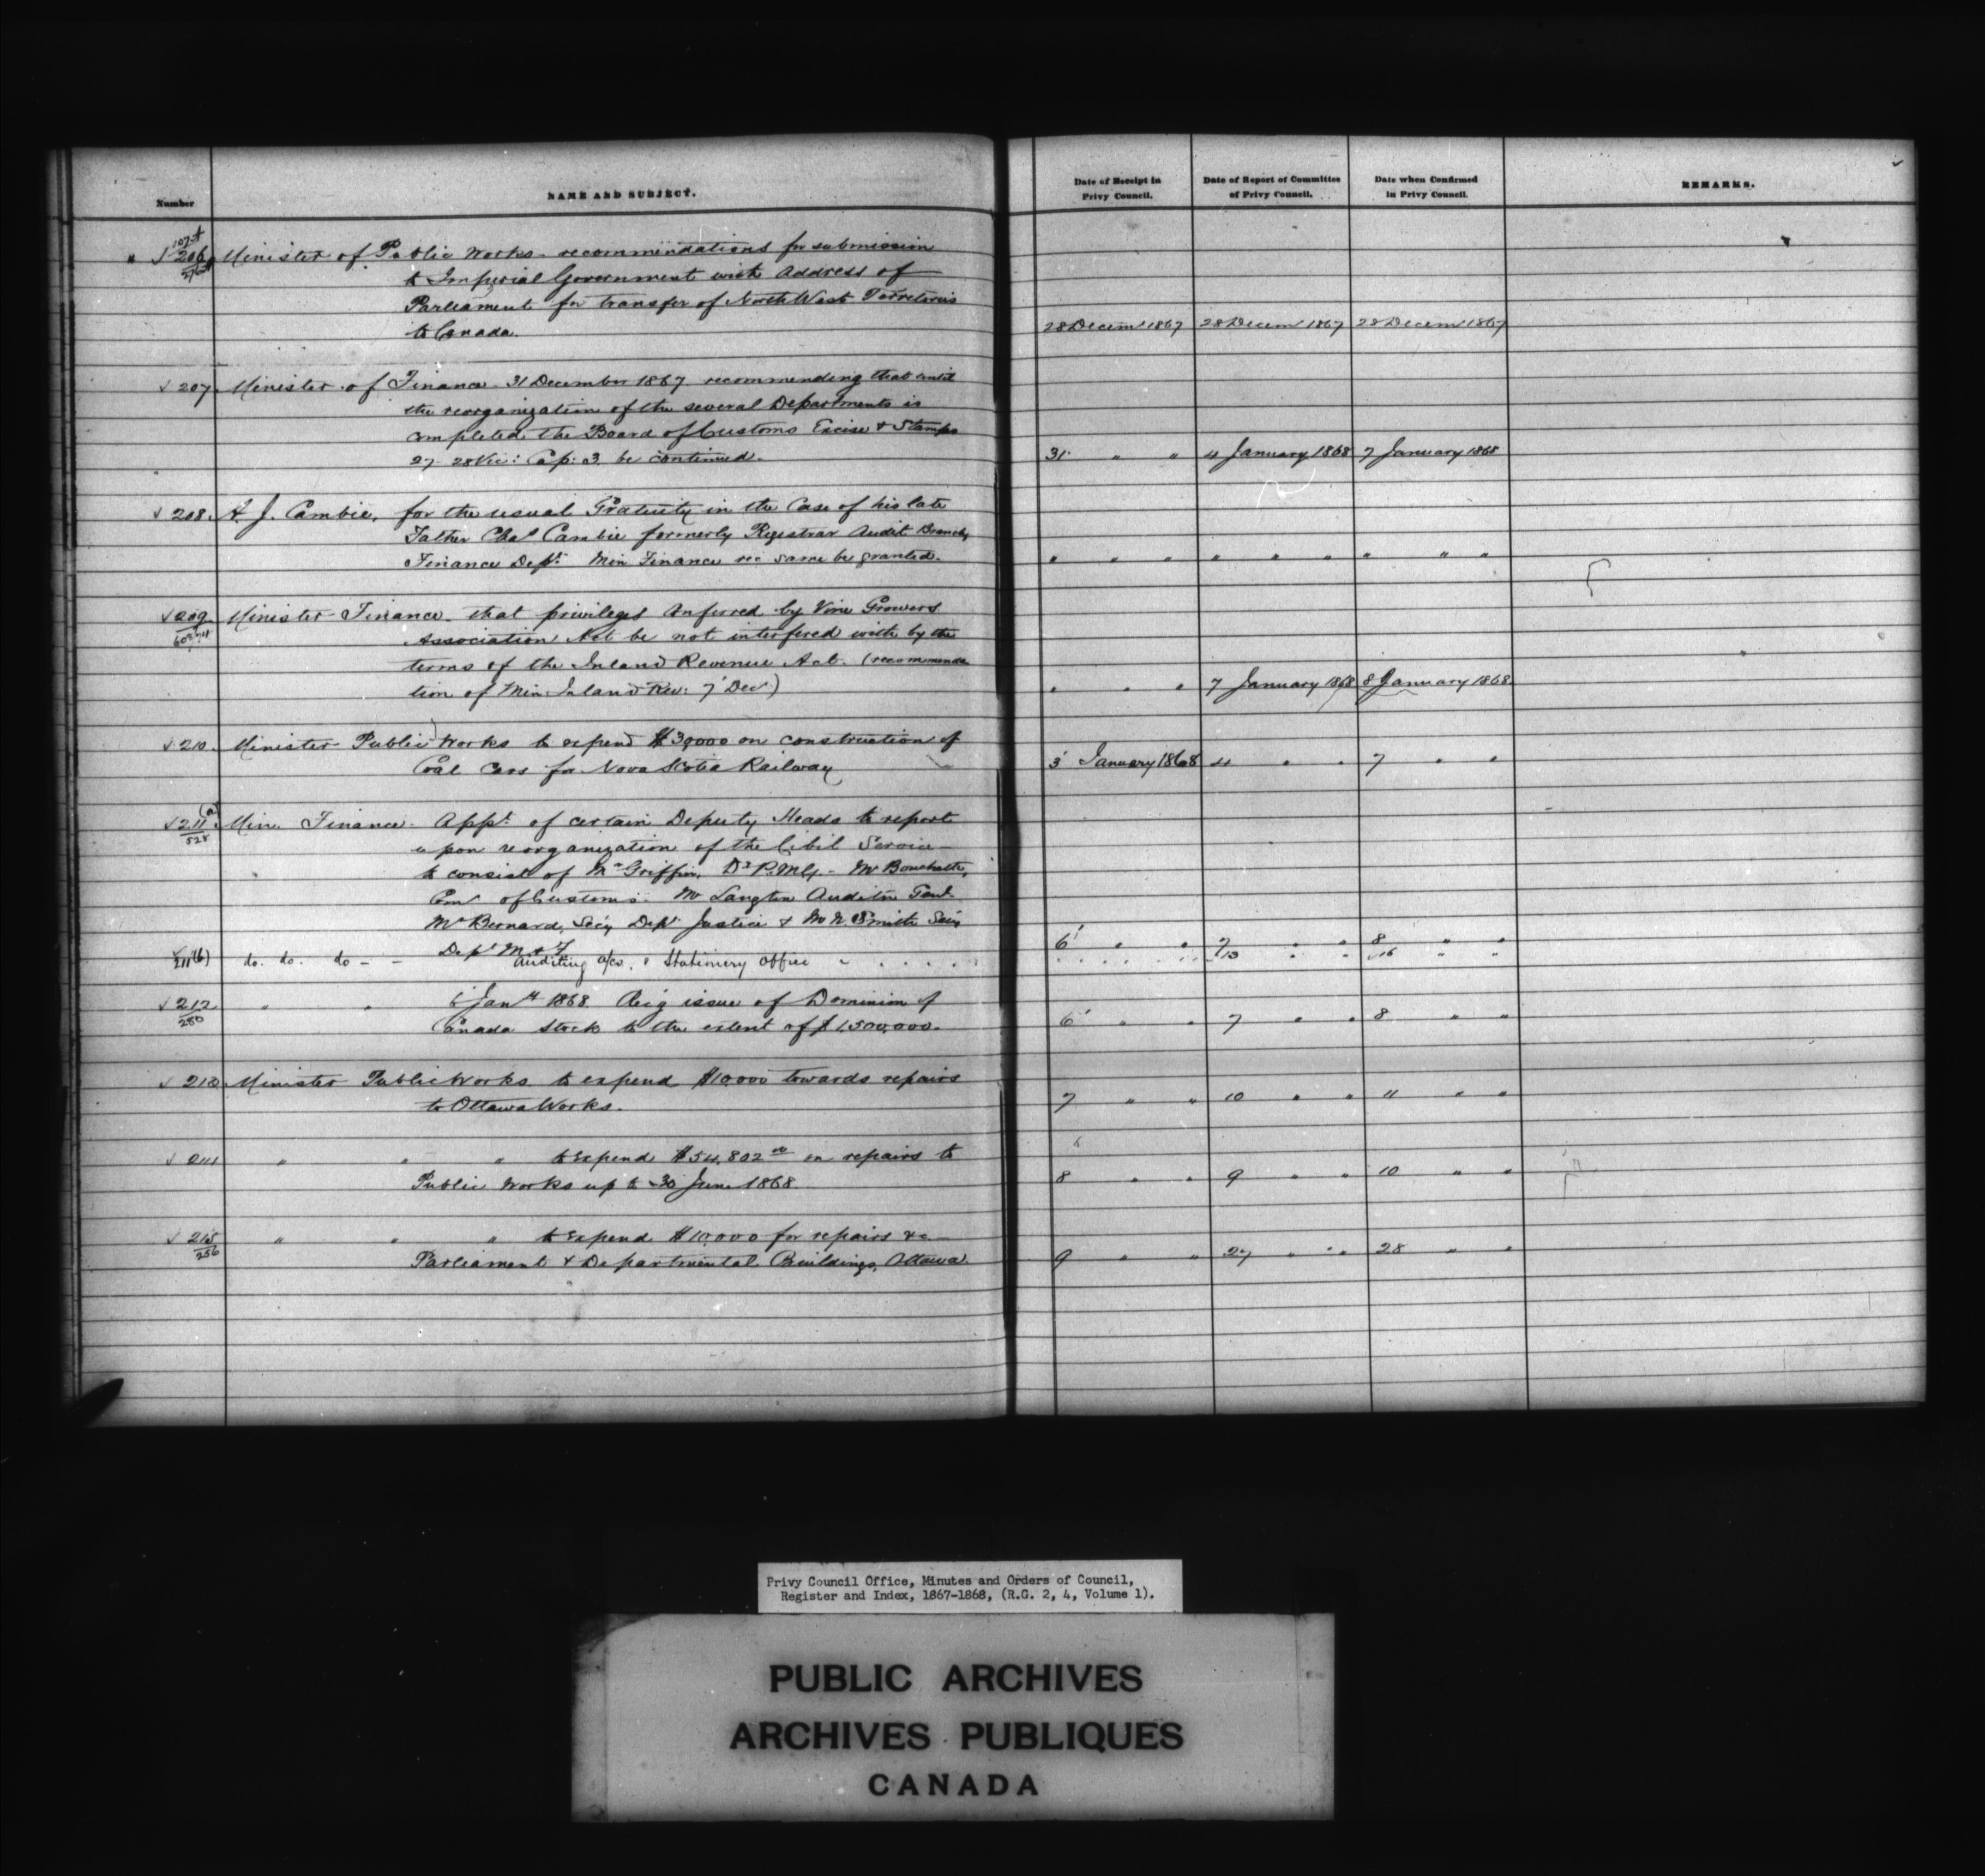 Number
NAME AND SUBJECT.
Date of Receipt in Privy Council.
Date of Report of Committee of Privy Council.
Date when Confirmed in Privy Council.
REMARKS.
206 Minister of Public Works recommendations for submission
to Imperial Government with Address of
Parliament for transfer of North West Territories
to Canada. 28 Decem 1867 28 Decem 1867 28 Decem 1867
207. Minister of Finance 31 December 1867 recommending that until
the reorganization of the several Departments is
completed the Board of Customs Excise & Stamps
27. 28 Vic: Cap: 3. be continued. 31 " " 4 January 1868 7 January 1868
208. A. J. Cambie, for the usual Gratuity in the Case of his late
Father Chas Cambie formerly Registrar Audit Branch,
Finance Dept. Min Finance rec same be granted. " " " " " " " " "
209 Minister Finance that privileges conferred by Vine Growers
Association Act be not interfered with by the
terms of the Inland Revenue Act. (recommenda
tion of Min: Inland Rev: 7 Dec) " " " 7 January 1868 8 January 1868
210. Minister Public Works to expend $30,000 on construction of
Coal Cars for Nova Scotia Railway 3 January 1868 4 " " 7 " "
211 (a) Min. Finance. Appt. of certain Deputy Heads to report
528
upon reorganization of the Civil Service
to consist of Mr Griffin, Dy P.M.G. - Mr Bouchette,
Comr of Customs. Mr Langton Auditor Genl
Mr Bernard, Secy Dept Justice & Mr W. Smith Secy
Dept M & F 6 " " 7 " " 8 " "
211 (b) do. do. do - - Auditing a/cs. Stationery Office 13 " " 16 " "
212 " " 6 Jany 1868 issue of Dominion of
280
Canada Stock to the extent of $1,500,000. 6 " " 7 " " 8 " "
213 Minister Public Works to expend $10,000 towards repairs
to Ottawa Works. 7 " " 10 " " 11 " "
214 " " " to Expend $54,802 00 on repairs to
Public Works up to 30 June 1868 8 " " 9 " " 10 " "
215 " " " to Expend $10,000 for repairs &c
256
Parliament & Departmental Buildings, Ottawa. 9 " " 27 " " 28 " "
Privy Council Office, Minutes and Orders of Council,
Register and Index, 1867-1868, (R.G. 2, 4, Volume 1).
PUBLIC ARCHIVES
ARCHIVES PUBLIQUES
CANADA